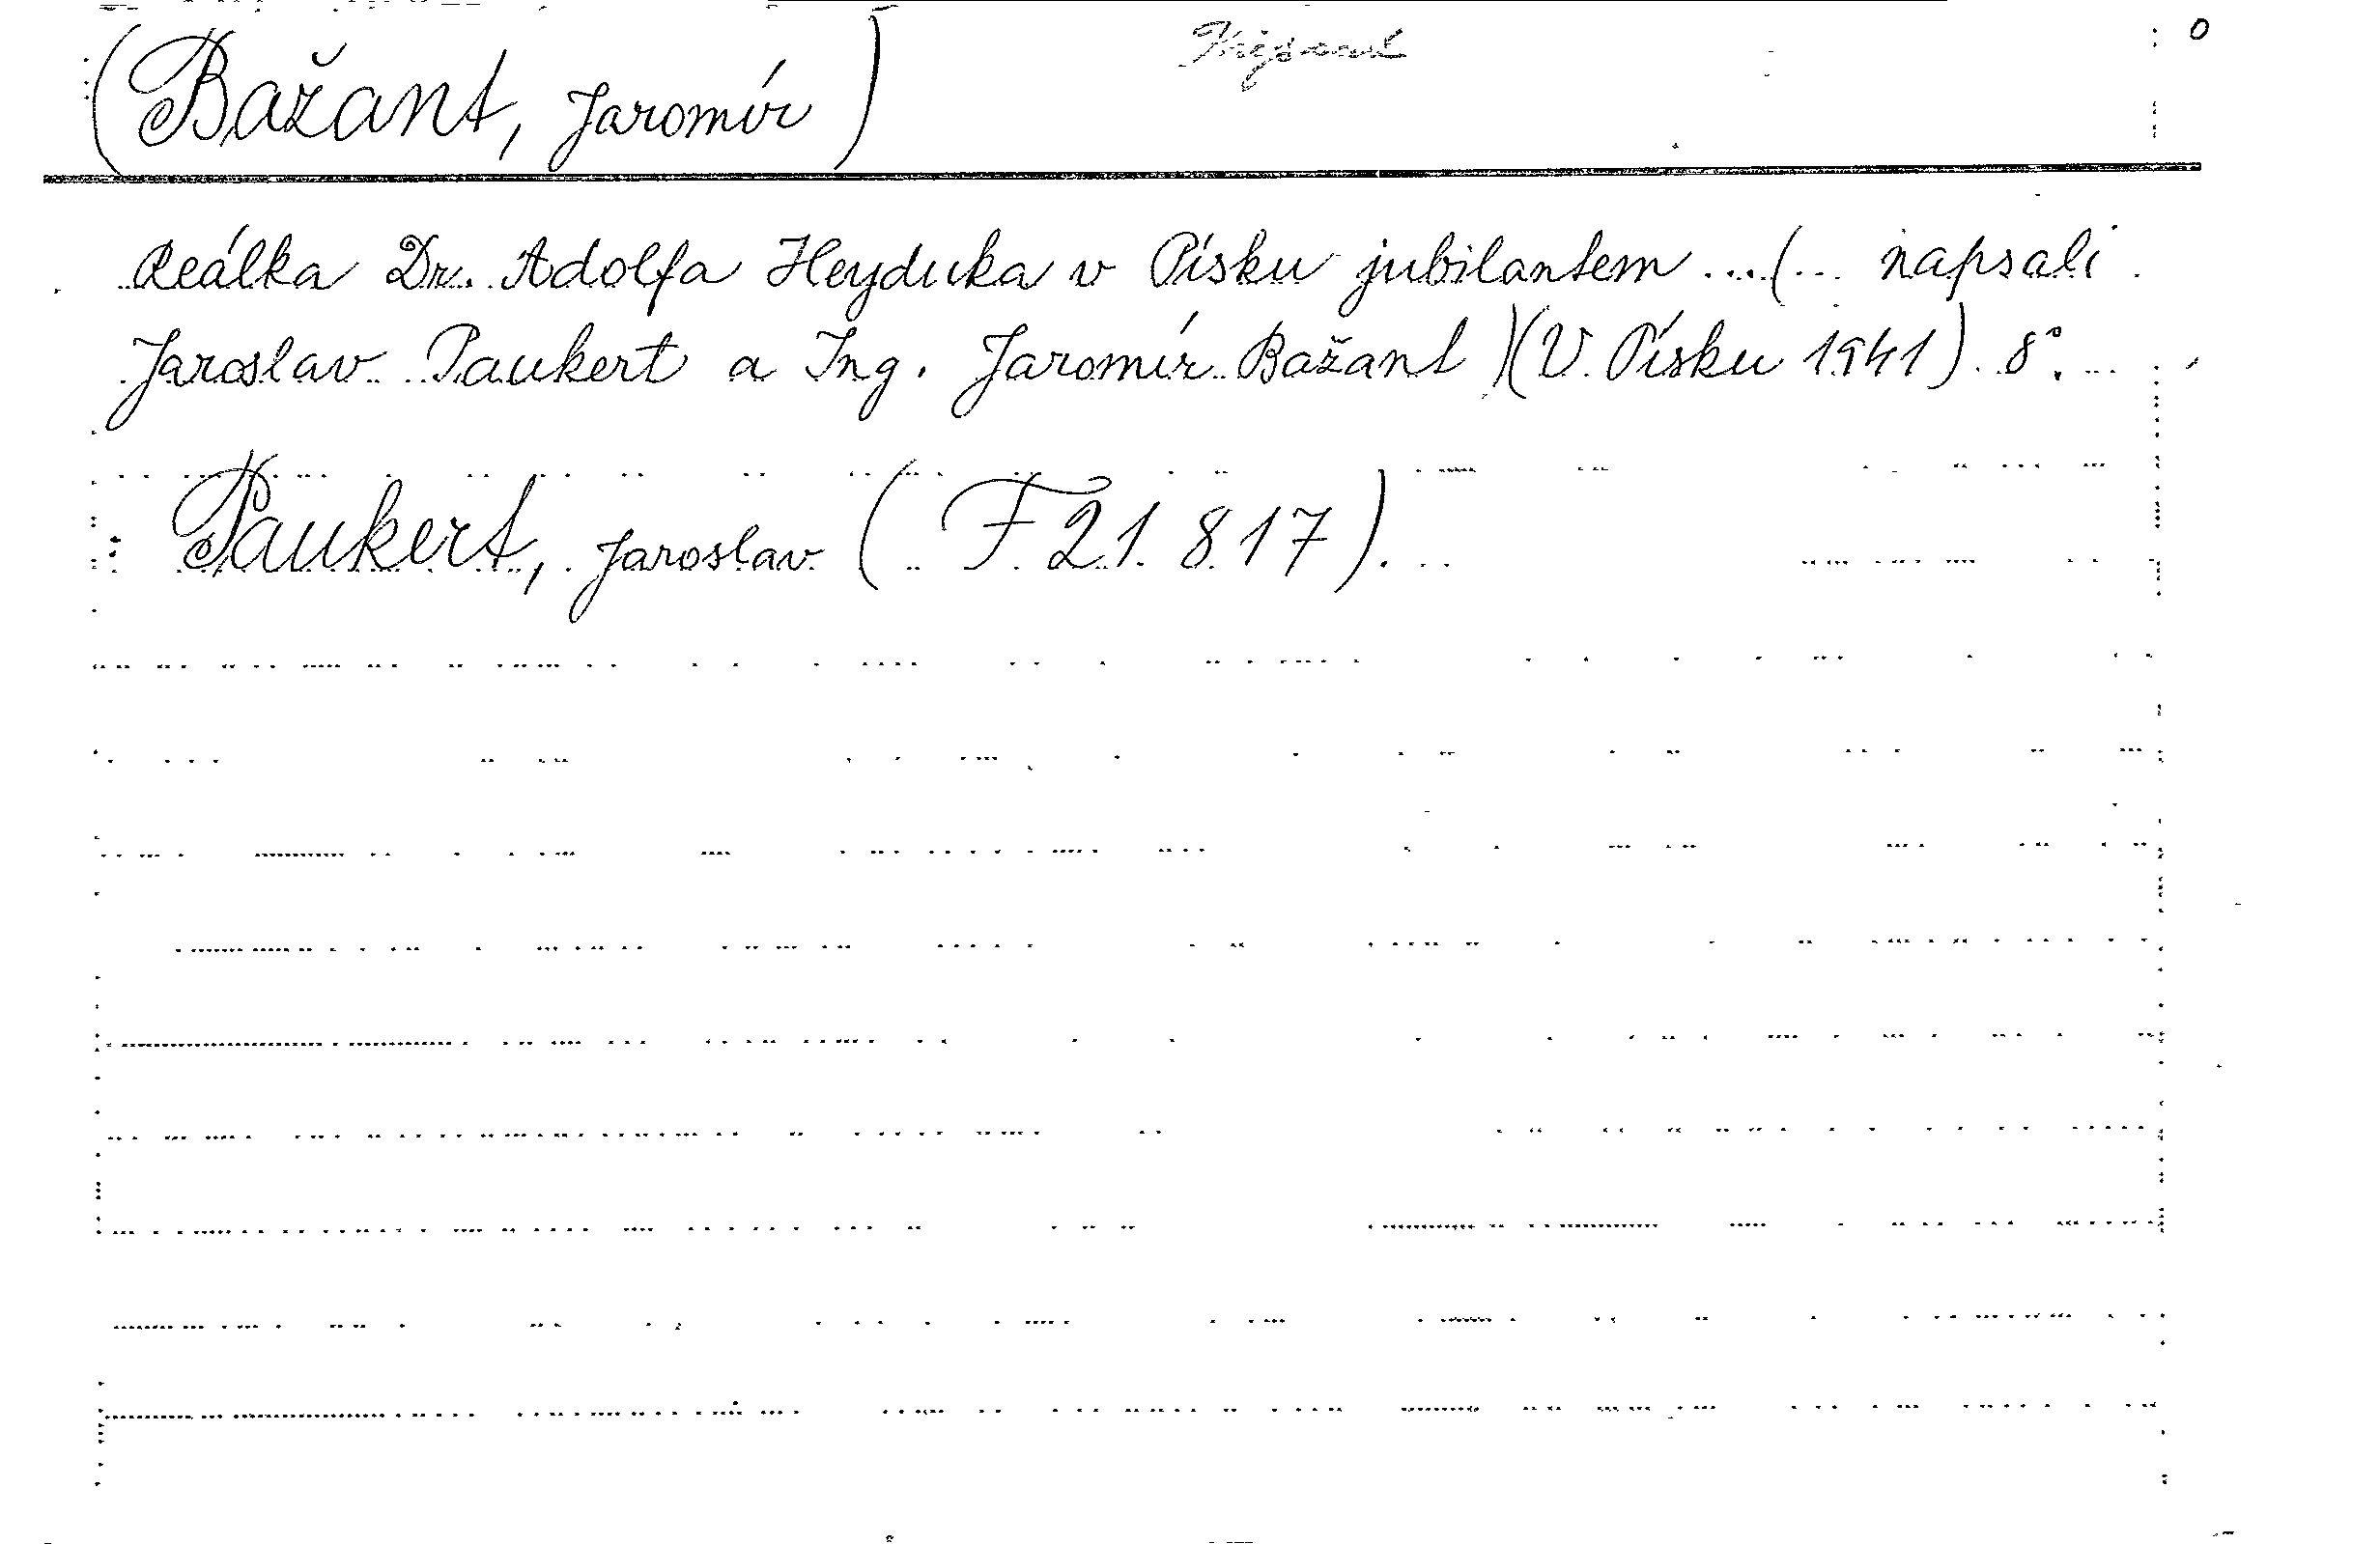 (Bažant, Jaromír)
Reálka Dr. Adolfa Heyduka v Písku jubilantem ... (... napsali
Jaroslav Paukert a Ing. Jaromír Bažant)(V Písku 1941). 8°.
Paukert, Jaroslav (F 21.817).